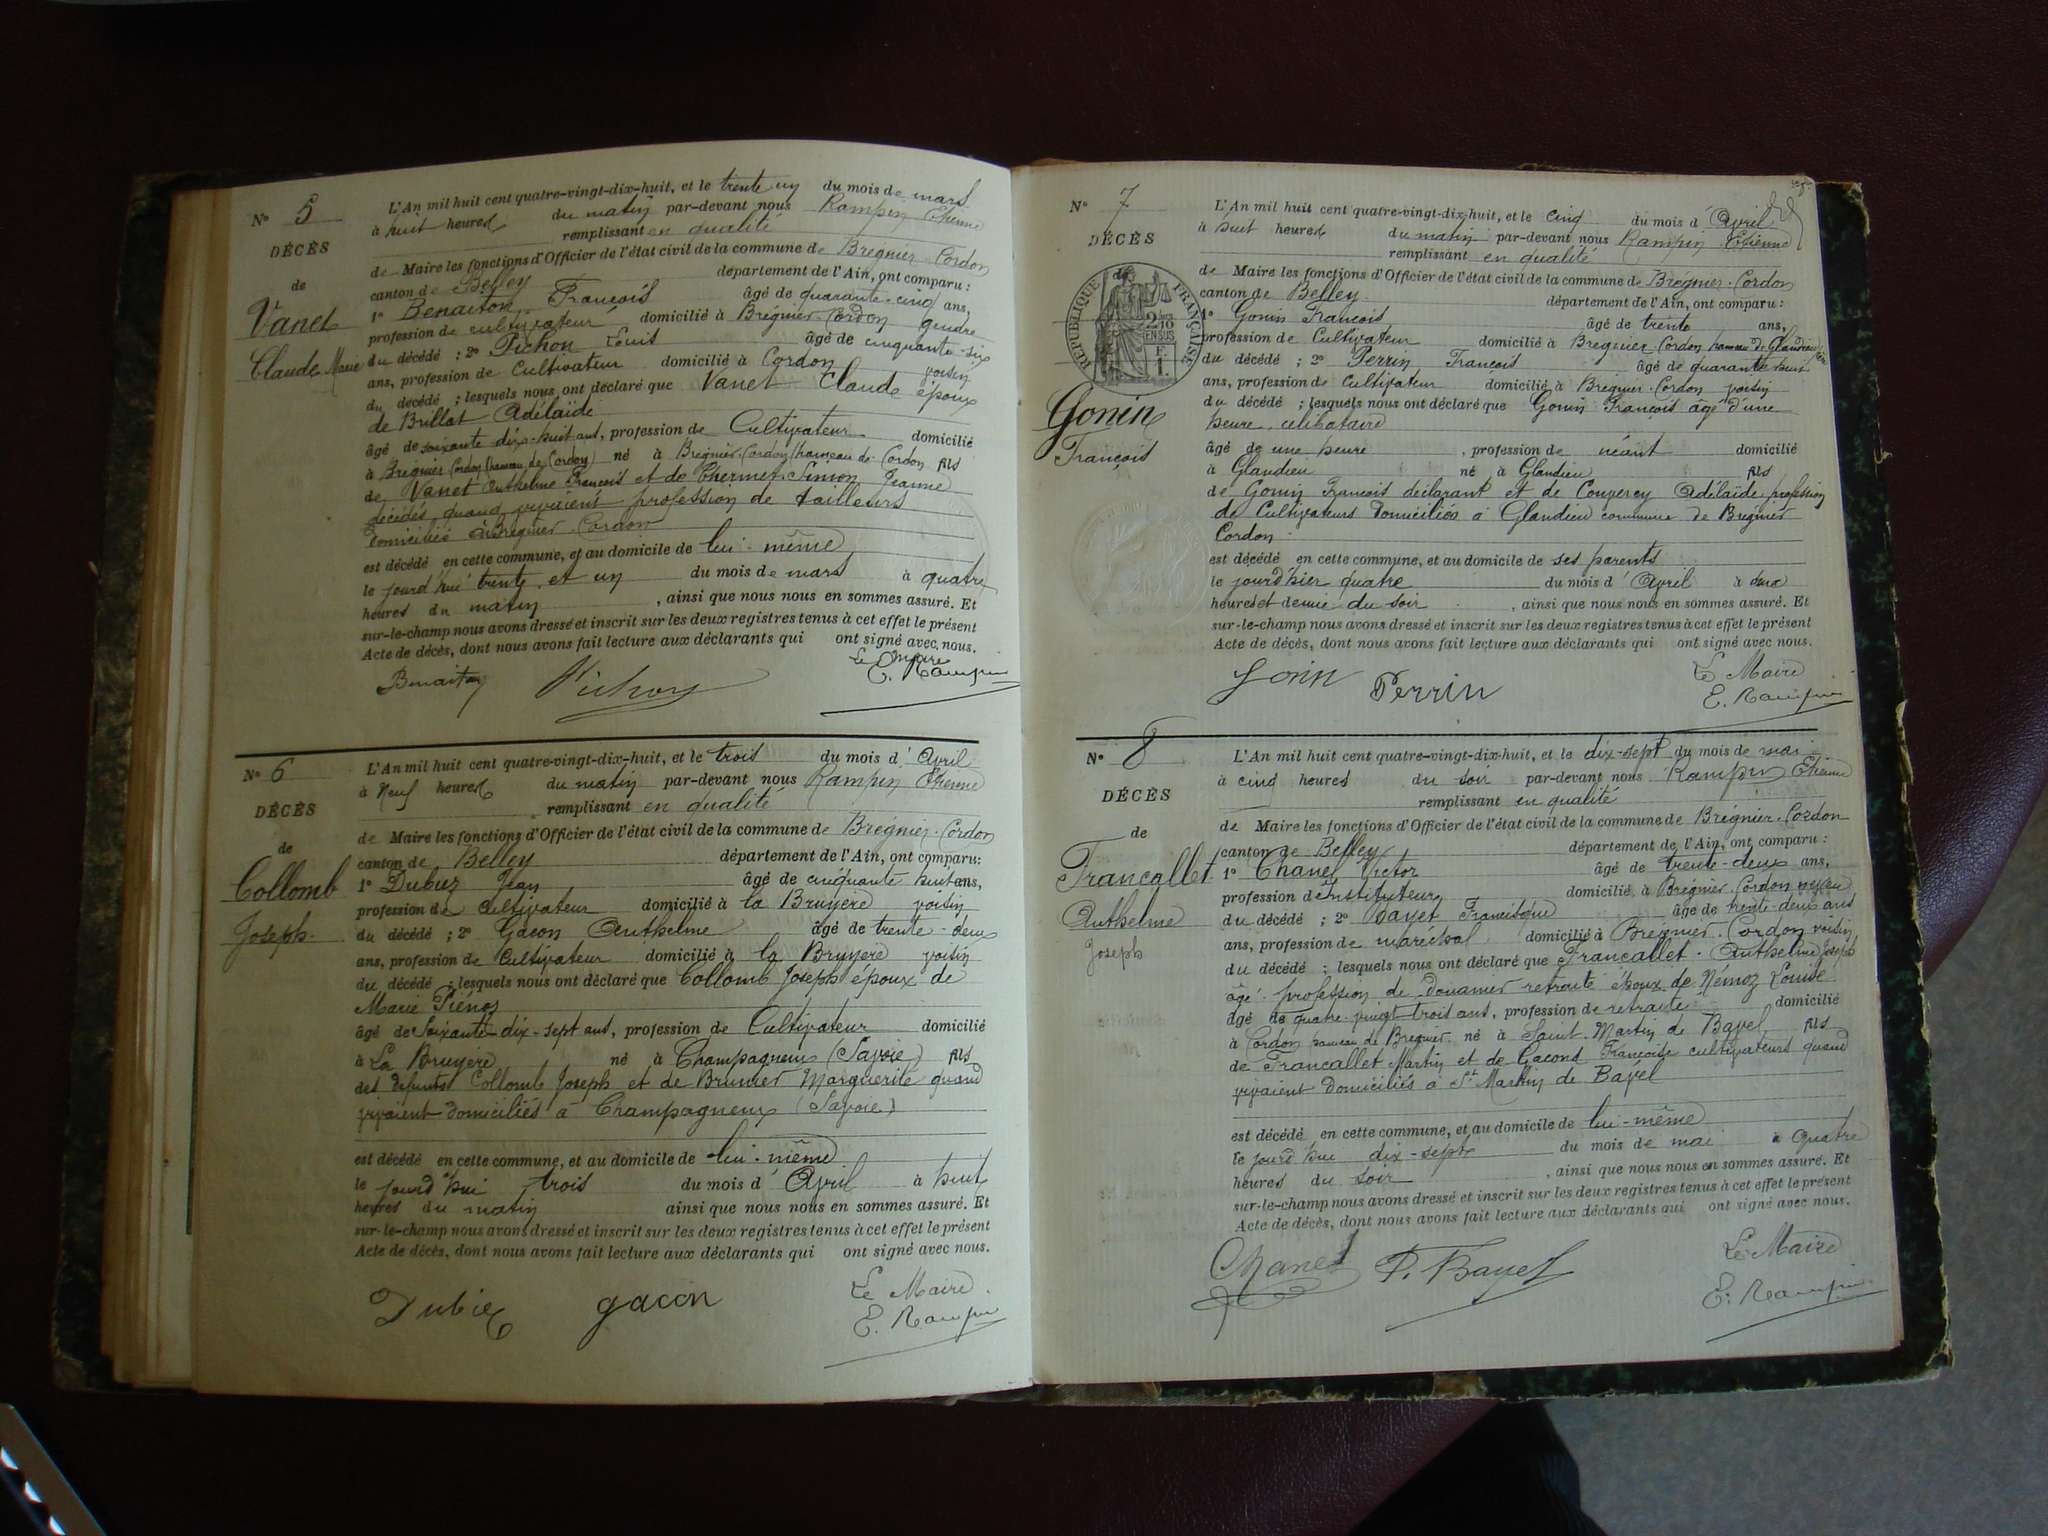 N° 5
DÉCÈS
de
Vanet
Claude Marie
L'An mil huit cent quatre-vingt-dix-huit, et le trente un du mois de mars
à huit heures du matin par-devant nous Rampin Etienne
remplissant en qualité
de Maire les fonctions d'Officier de l'état civil de la commune de Brégnier-Cordon
canton de Belley département de l'Ain, ont comparu :
1° Benaiton François âgé de quarante-cinq ans,
profession de cultivateur domicilié à Brégnier-Cordon gendre
du décédé ; 2° Pichon Louis âgé de cinquante-six
ans, profession de cultivateur domicilié à Cordon voisin
du décédé ; lesquels nous ont déclaré que Vanet Claude époux
de Brillat Adélaïde
âgé de soixante dix-huit ans, profession de Cultivateur domicilié
à Bregnier Cordon (hameau de Cordon) né à Brégnier-Cordon (hameau de Cordon fils
de Vanet Anthelme François et de Thermet-Simon Jeanne
décédés quand vivaient profession de tailleurs
domiciliés à Brégnier-Cordon
est décédé en cette commune, et au domicile de lui-même
le jourd'hui trente et un du mois de mars à quatre
heures du matin , ainsi que nous nous en sommes assuré. Et
sur-le-champ nous avons dressé et inscrit sur les deux registres tenus à cet effet le présent
Acte de décès, dont nous avons fait lecture aux déclarants qui ont signé avec nous.
Le Maire
Benaiton Pichon E. Rampin
N° 6
DÉCÈS
de
Collomb
Joseph.
L'An mil huit cent quatre-vingt-dix-huit, et le trois du mois d' Avril
à Neuf heures du matin par-devant nous Rampin Etienne
remplissant en qualité
de Maire les fonctions d'Officier de l'état civil de la commune de Brégnier-Cordon
canton de Belley département de l'Ain, ont comparu:
1° Dubiez Jean âgé de cinquante huit ans,
profession de cultivateur domicilié à la Bruyère voisin
du décédé ; 2° Gacon Anthelme âgé de trente-deux
ans, profession de Cultivateur domicilié à la Bruyère voisin
du décédé lesquels nous ont déclaré que Collomb Joseph époux de
Marie
âgé de Soixante-dix-sept ans, profession de Cultivateur domicilié
à La Bruyère né à Champagneux (Savoie) fils
des défunts Collomb Joseph et de Brunier Marguerite quand
vivaient domiciliés à Champagneux (Savoie)
est décédé en cette commune, et au domicile de lui-même
le jourd'hui trois du mois d' Avril à huit
heures du matin ainsi que nous nous en sommes assuré. Et
sur-le-champ nous avons dressé et inscrit sur les deux registres tenus à cet effet le présent
Acte de décès, dont nous avons fait lecture aux déclarants qui ont signé avec nous.
Le Maire.
Dubiez gacon E. Rampin
N° 7
DÉCÈS
de
RÉPUBLIQUE FRANÇAISE
2/10 EN SUS
Gonin
François
L'An mil huit cent quatre-vingt-dix-huit, et le cinq du mois d' Avril
à huit heures du matin par-devant nous Rampin Etienne
remplissant en qualité
de Maire les fonctions d'Officier de l'état civil de la commune de Brégnier-Cordon
canton de Belley département de l'Ain, ont comparu :
1° Gonin François âgé de trente ans,
profession de Cultivateur domicilié à Bregnier Cordon hameau de Glandieu
du décédé ; 2° Perrin François âgé de quarante
ans, profession de cultivateur domicilié à Brégnier-Cordon voisin
du décédé ; lesquels nous ont déclaré que Gonin François âgé d'une
heure célibataire
âgé de une heure , profession de néant domicilié
à Glandieu né à Glandieu fils
de Gonin François déclarant et de Adélaïde profession
de Cultivateurs domiciliés à Glandieu commune de Bregnier
Cordon
est décédé en cette commune, et au domicile de ses parents
le jourd'hier quatre du mois d' Avril à deux
heures et demie du soir , ainsi que nous nous en sommes assuré. Et
sur-le-champ nous avons dressé et inscrit sur les deux registres tenus à cet effet le présent
Acte de décès, dont nous avons fait lecture aux déclarants qui ont signé avec nous.
Gonin Perrin Le Maire
E. Rampin
N° 8
DÉCÈS
de
Francallet
Anthelme
Joseph
L'An mil huit cent quatre-vingt-dix-huit, et le dix-sept du mois de mai
à cinq heures du soir par-devant nous Rampin Etienne
remplissant en qualité
de Maire les fonctions d'Officier de l'état civil de la commune de Brégnier-Cordon
canton de Belley département de l'Ain, ont comparu :
1° Chanel Victor âgé de trente-deux ans,
profession d'instituteur domicilié à Brégnier-Cordon neveu
du décédé ; 2° Bayet Francisque âgé de trente-deux ans
ans, profession de maréchal domicilié à Bregnier-Cordon voisin
du décédé ; lesquels nous ont déclaré que Francallet Anthelme Joseph
âgé profession de douanier retraité époux de Némoz Louise
âgé de quatre-vingt trois ans, profession de retraité domicilié
à Cordon hameau de Bregnier né à Saint-Martin de Bavel fils
de Francallet Martin et de Gacond Françoise cultivateurs quand
vivaient domiciliés à St Martin de Bavel
est décédé en cette commune, et au domicile de lui-même
le jourd'hui dix-sept du mois de mai à quatre
heures du soir , ainsi que nous nous en sommes assuré. Et
sur-le-champ nous avons dressé et inscrit sur les deux registres tenus à cet effet le présent
Acte de décès, dont nous avons fait lecture aux déclarants qui ont signé avec nous.
Chanel F. Bayet Le Maire
E. Rampin